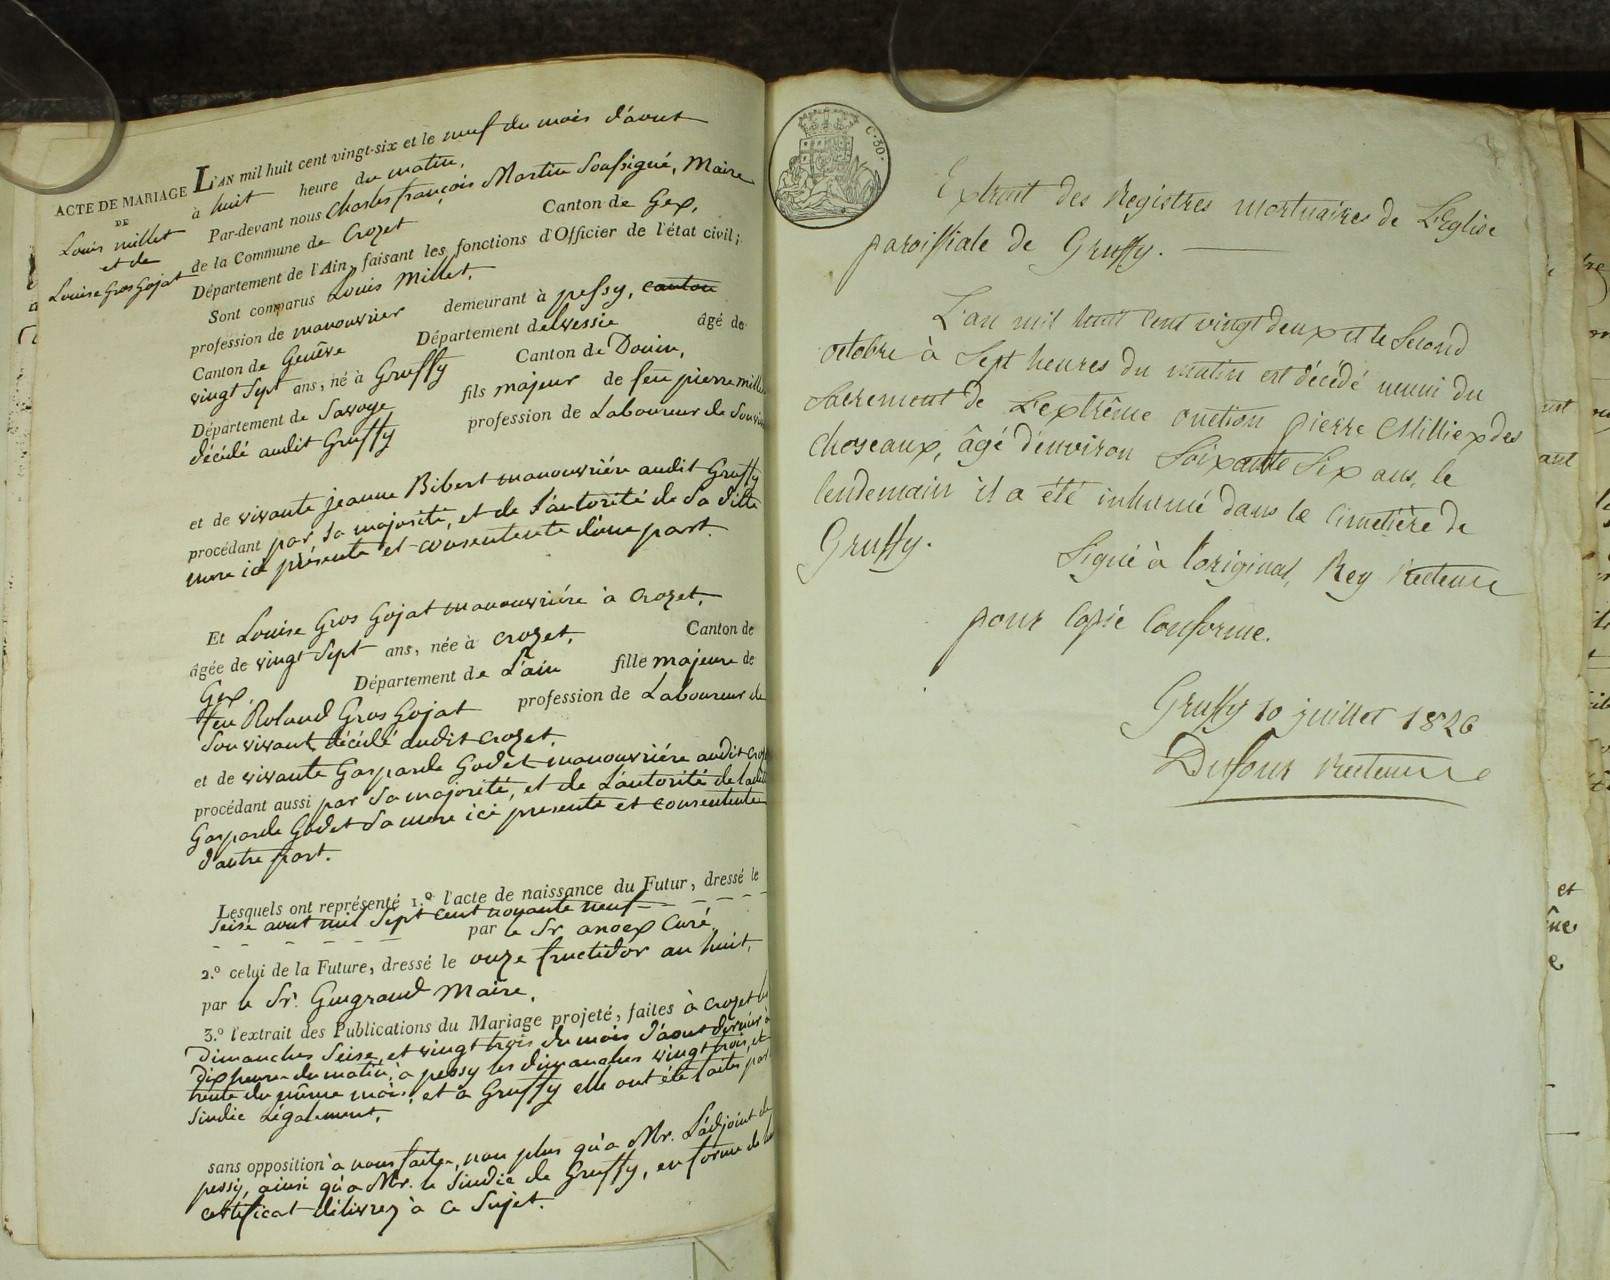 ACTE DE MARIAGE
DE
Louis millet
et de
Louise Gros Gojat
L'AN mil huit cent vingt-six et le neuf du mois d'aout
à huit heure du matin.
Par-devant nous Charles françois Martin Soussigné, Maire
de la Commune de Crozet Canton de Gex,
Département de l'Ain, faisant les fonctions d'Officier de l'état civil;
Sont comparus Louis Millet,
profession de manouvrier demeurant à pessy, canton
Canton de Genêve Département delvessie âgé de
vingt sept ans, né à Gruffy Canton de Douin,
Département de Savoye fils majeur de feu pierre mill
décédé audit Gruffy profession de Laboureur de Son viv
et de vivante jeanne Bibert manouvriére audit Gruffy
procédant par sa majorité, et de l'autorité de Sa ditte
mere ici présente et consentente d'une part.
Et Louise Gros Gojat manouvriére à Crozet,
âgée de vingt sept ans, née à crozet, Canton de
Gex, Département de L'ain fille majeure de
feu Roland Gros Gojat profession de Laboureur de
Son vivant, décédé audit crozet.
et de vivante Gasparde Godet manouvriére audit croz
procédant aussi par Sa majorité, et de L'autorité de ladi
Gasparde Godet Sa mere ici presente et consentente
d'autre part.
Lesquels ont représenté 1.º l'acte de naissance du Futur, dressé le
seise aout mil Sept cent novante neuf
par le Sr anoex Curé,
2.º celui de la Future, dressé le onze fructidor an huit,
par le Sr. Gingrand Maire,
3.º l'extrait des Publications du Mariage projeté, faites à crozet
Dimanches Seise, et vingt trois du mois d'aout dernier à
dix heures du matin, à pessy les dimanches vingt trois, et
trente du même mois, et a Gruffy elle ont été faites par
Sindic Légalement,
sans opposition à nous faite, non plus qu'a Mr. L'adjoint de
pessy, ainsi qu'a Mr. le Sindic de Gruffy, en forme de
certificat délivrez à ce Sujet.
C. 30.
Extrait des Registres mortuaires de L'Eglise
paroissiale de Gruffy.
L'an mil huit cent vingt deux et le Second
octobre à Sept heures du matin est décédé muni du
Sacrement de L'extrême onction pierre Milliex des
choseaux, âgé d'environ Soixante Six ans, le
lendemain il a été inhumé dans le cimetière de
Gruffy.
Signé à l'original, Rey Recteur
pour Copie Conforme.
Gruffy 10 juillet 1826
Dufour Recteur